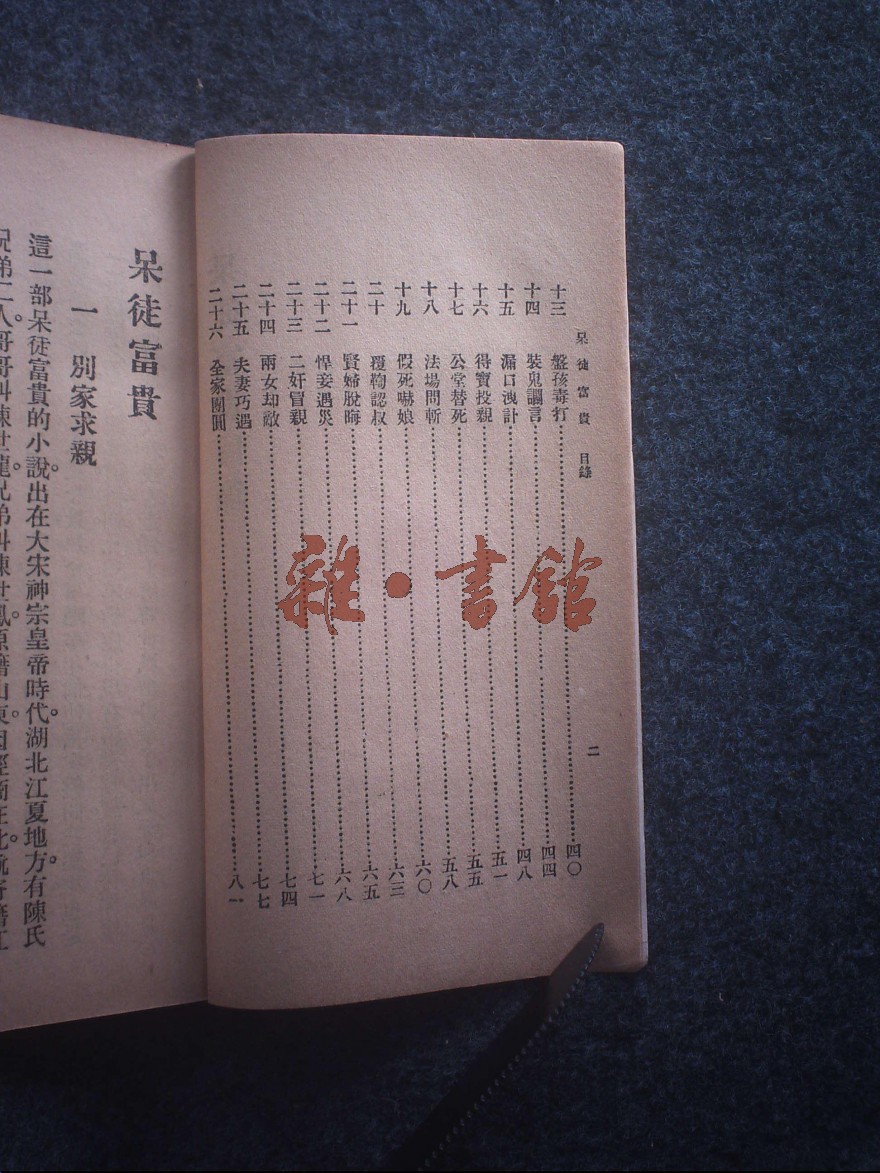 呆徒富貴 目錄 二
十三 盤孩毒打 四〇
十四 裝鬼讕言 四四
十五 漏口洩計 四八
十六 得寶投親 五一
十七 公堂替死 五五
十八 法場問斬 五八
十九 假死嚇娘 六〇
二十 覆鞫認叔 六三
二十一 賢婦脫晦 六五
二十二 悍妾遇災 六八
二十三 二奸冒親 七一
二十四 兩女却敵 七四
二十五 夫妻巧遇 七七
二十六 全家團圓 八一
雜·書館
呆徒富貴
一 別家求親
這一部呆徒富貴的小說。出在大宋神宗皇帝時代。湖北江夏地方。有陳氏
兄弟二人。哥哥叫陳世龍。兄弟叫陳世鳳。原籍山東。因經商在此。